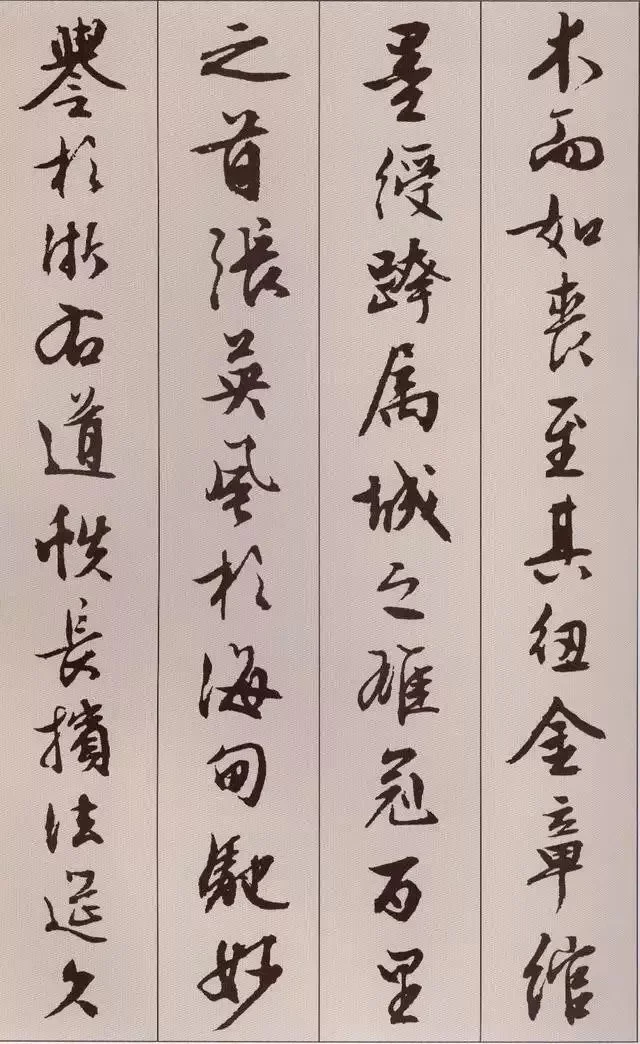 木而如喪至其纽金章綰
墨綬跨属城之雄冠百里
之首張英風於海甸馳妙
譽於浙右道帙長擯法筵久